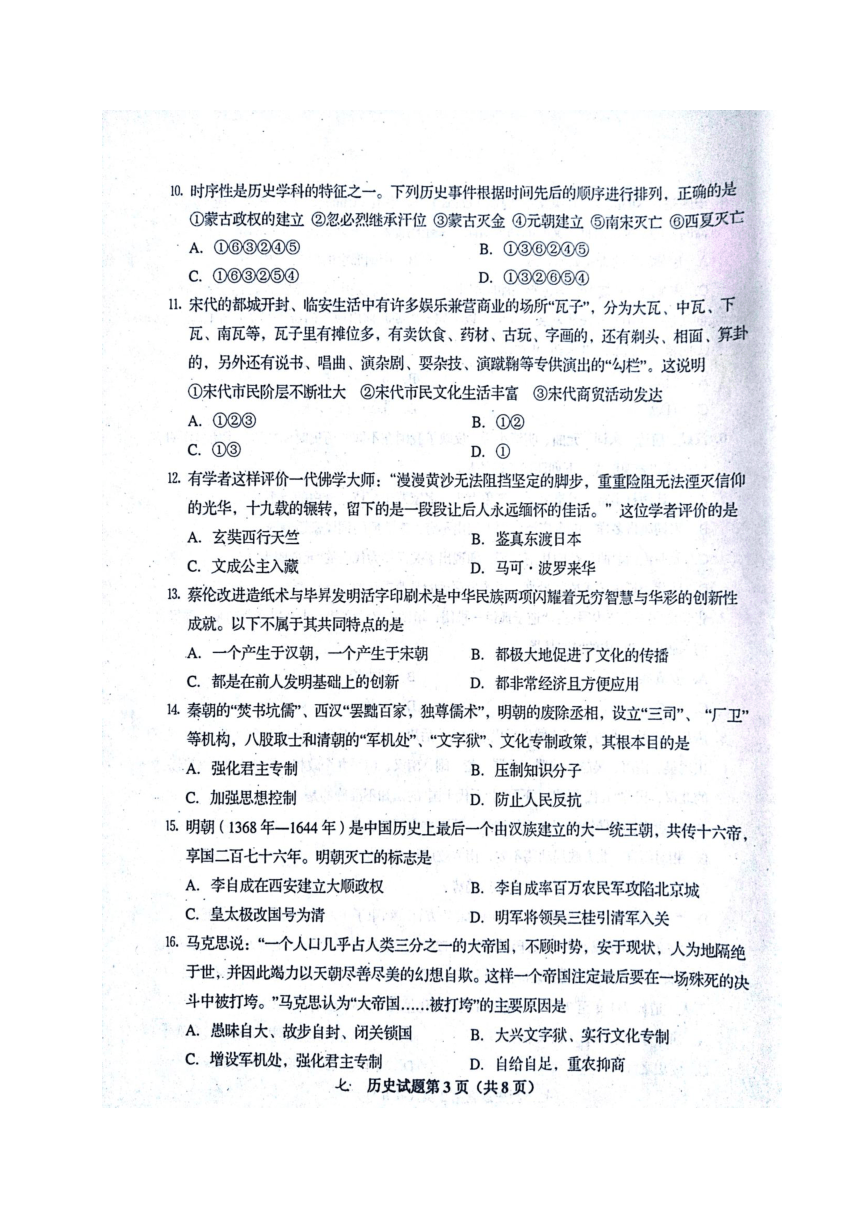 10. 时序性是历史学科的特征之一。下列历史事件根据时间先后的顺序进行排列，正确的是
①蒙古政权的建立 ②忽必烈继承汗位 ③蒙古灭金 ④元朝建立 ⑤南宋灭亡 ⑥西夏灭亡
A. ①⑥③②④⑤ B. ①③⑥②④⑤
C. ①⑥③②⑤④ D. ①③②⑥⑤④
11. 宋代的都城开封、临安生活中有许多娱乐兼营商业的场所“瓦子”，分为大瓦、中瓦、下
瓦、南瓦等，瓦子里有摊位多，有卖饮食、药材、古玩、字画的，还有剃头、相面、算卦
的，另外还有说书、唱曲、演杂剧、耍杂技、演蹴鞠等专供演出的“勾栏”。这说明
①宋代市民阶层不断壮大 ②宋代市民文化生活丰富 ③宋代商贸活动发达
A. ①②③ B. ①②
C. ①③ D. ①
12. 有学者这样评价一代佛学大师：“漫漫黄沙无法阻挡坚定的脚步，重重险阻无法湮灭信仰
的光华，十九载的辗转，留下的是一段段让后人永远缅怀的佳话。”这位学者评价的是
A. 玄奘西行天竺 B. 鉴真东渡日本
C. 文成公主入藏 D. 马可·波罗来华
13. 蔡伦改进造纸术与毕昇发明活字印刷术是中华民族两项闪耀着无穷智慧与华彩的创新性
成就。以下不属于其共同特点的是
A. 一个产生于汉朝，一个产生于宋朝 B. 都极大地促进了文化的传播
C. 都是在前人发明基础上的创新 D. 都非常经济且方便应用
14. 秦朝的“焚书坑儒”、西汉“罢黜百家，独尊儒术”，明朝的废除丞相，设立“三司”、“厂卫”
等机构，八股取士和清朝的“军机处”、“文字狱”、文化专制政策，其根本目的是
A. 强化君主专制 B. 压制知识分子
C. 加强思想控制 D. 防止人民反抗
15. 明朝（1368年—1644年）是中国历史上最后一个由汉族建立的大一统王朝，共传十六帝，
享国二百七十六年。明朝灭亡的标志是
A. 李自成在西安建立大顺政权 B. 李自成率百万农民军攻陷北京城
C. 皇太极改国号为清 D. 明军将领吴三桂引清军入关
16. 马克思说：“一个人口几乎占人类三分之一的大帝国，不顾时势，安于现状，人为地隔绝
于世，并因此竭力以天朝尽善尽美的幻想自欺。这样一个帝国注定最后要在一场殊死的决
斗中被打垮。”马克思认为“大帝国……被打垮”的主要原因是
A. 愚昧自大、故步自封、闭关锁国 B. 大兴文字狱、实行文化专制
C. 增设军机处，强化君主专制 D. 自给自足，重农抑商
七 历史试题第3页（共8页）